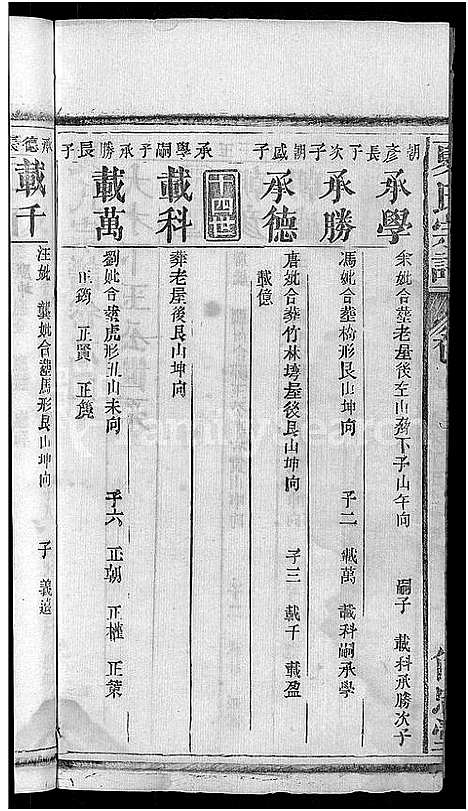 胡彥長子
承學
余妣合葬老屋後左山磅下子山午向 嗣子 載科承勝次子
次子
承勝
馮妣合葬橋形艮山坤向 子二 載萬 載科嗣承學
胡盛子
承德
唐妣合葬竹林塆屋後艮山坤向 子三 載千 載盈
載億
十四世
承學嗣子
載科
葬老屋後艮山坤向
承勝長子
載萬
劉妣合葬虎形丑山未向 子六 正朝 正權 正榮
正筠 正賢 正篪
承德長
載千
汪妣 龔妣合葬馬形艮山坤向 子 義遠